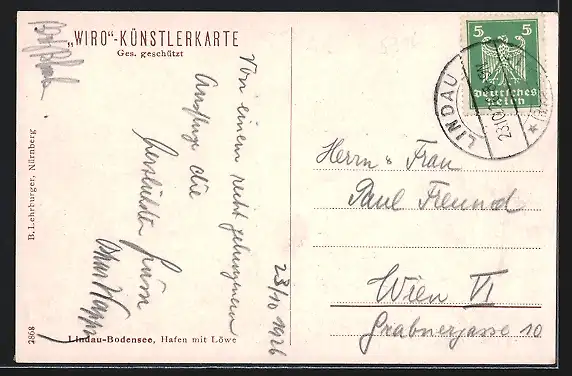 „WIRO“-KÜNSTLERKARTE
Ges. geschützt
Von einem recht gelungenen
Ausfluge die
herzlichsten Grüsse
23/10 1926
B. Lehrburger, Nürnberg
2868
Lindau-Bodensee, Hafen mit Löwe
5 5
Deutsches
Reich
LINDAU
23.10
Herrn & Frau
Paul Freund
Wien VI
Grabnergasse 10